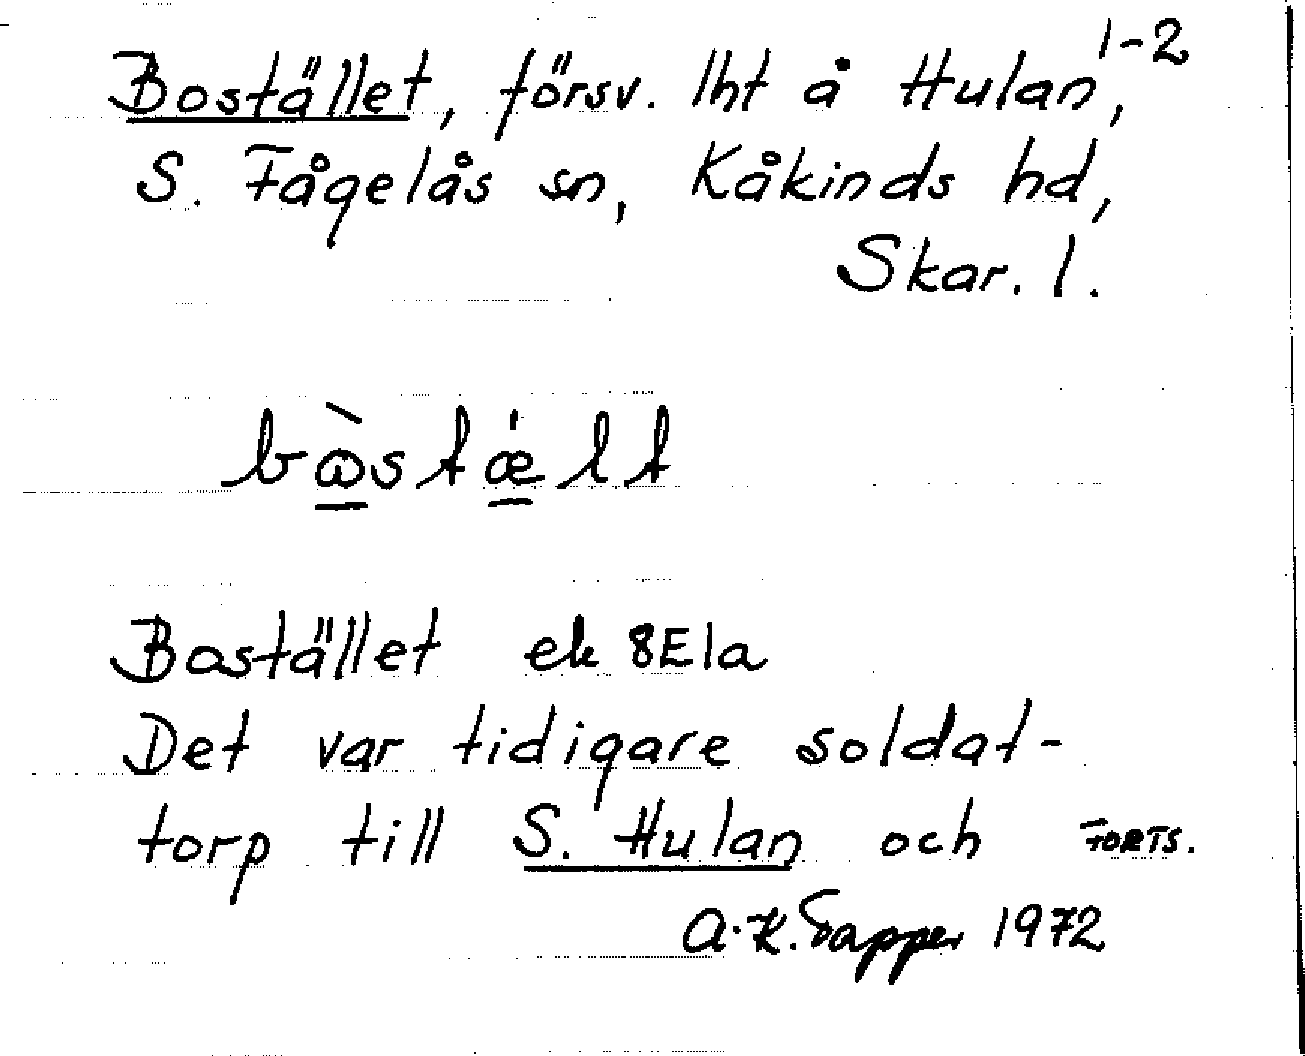 Bostället, försv. lht å Hulan 1-2,
S. Fågelås sn, Kåkinds hd,
Skar. l.
bὼstǽlt
Bostället ek 8E1a
Det var tidigare soldat-
torp till S. Hulan och FORTS.
A.K. Sapper 1972